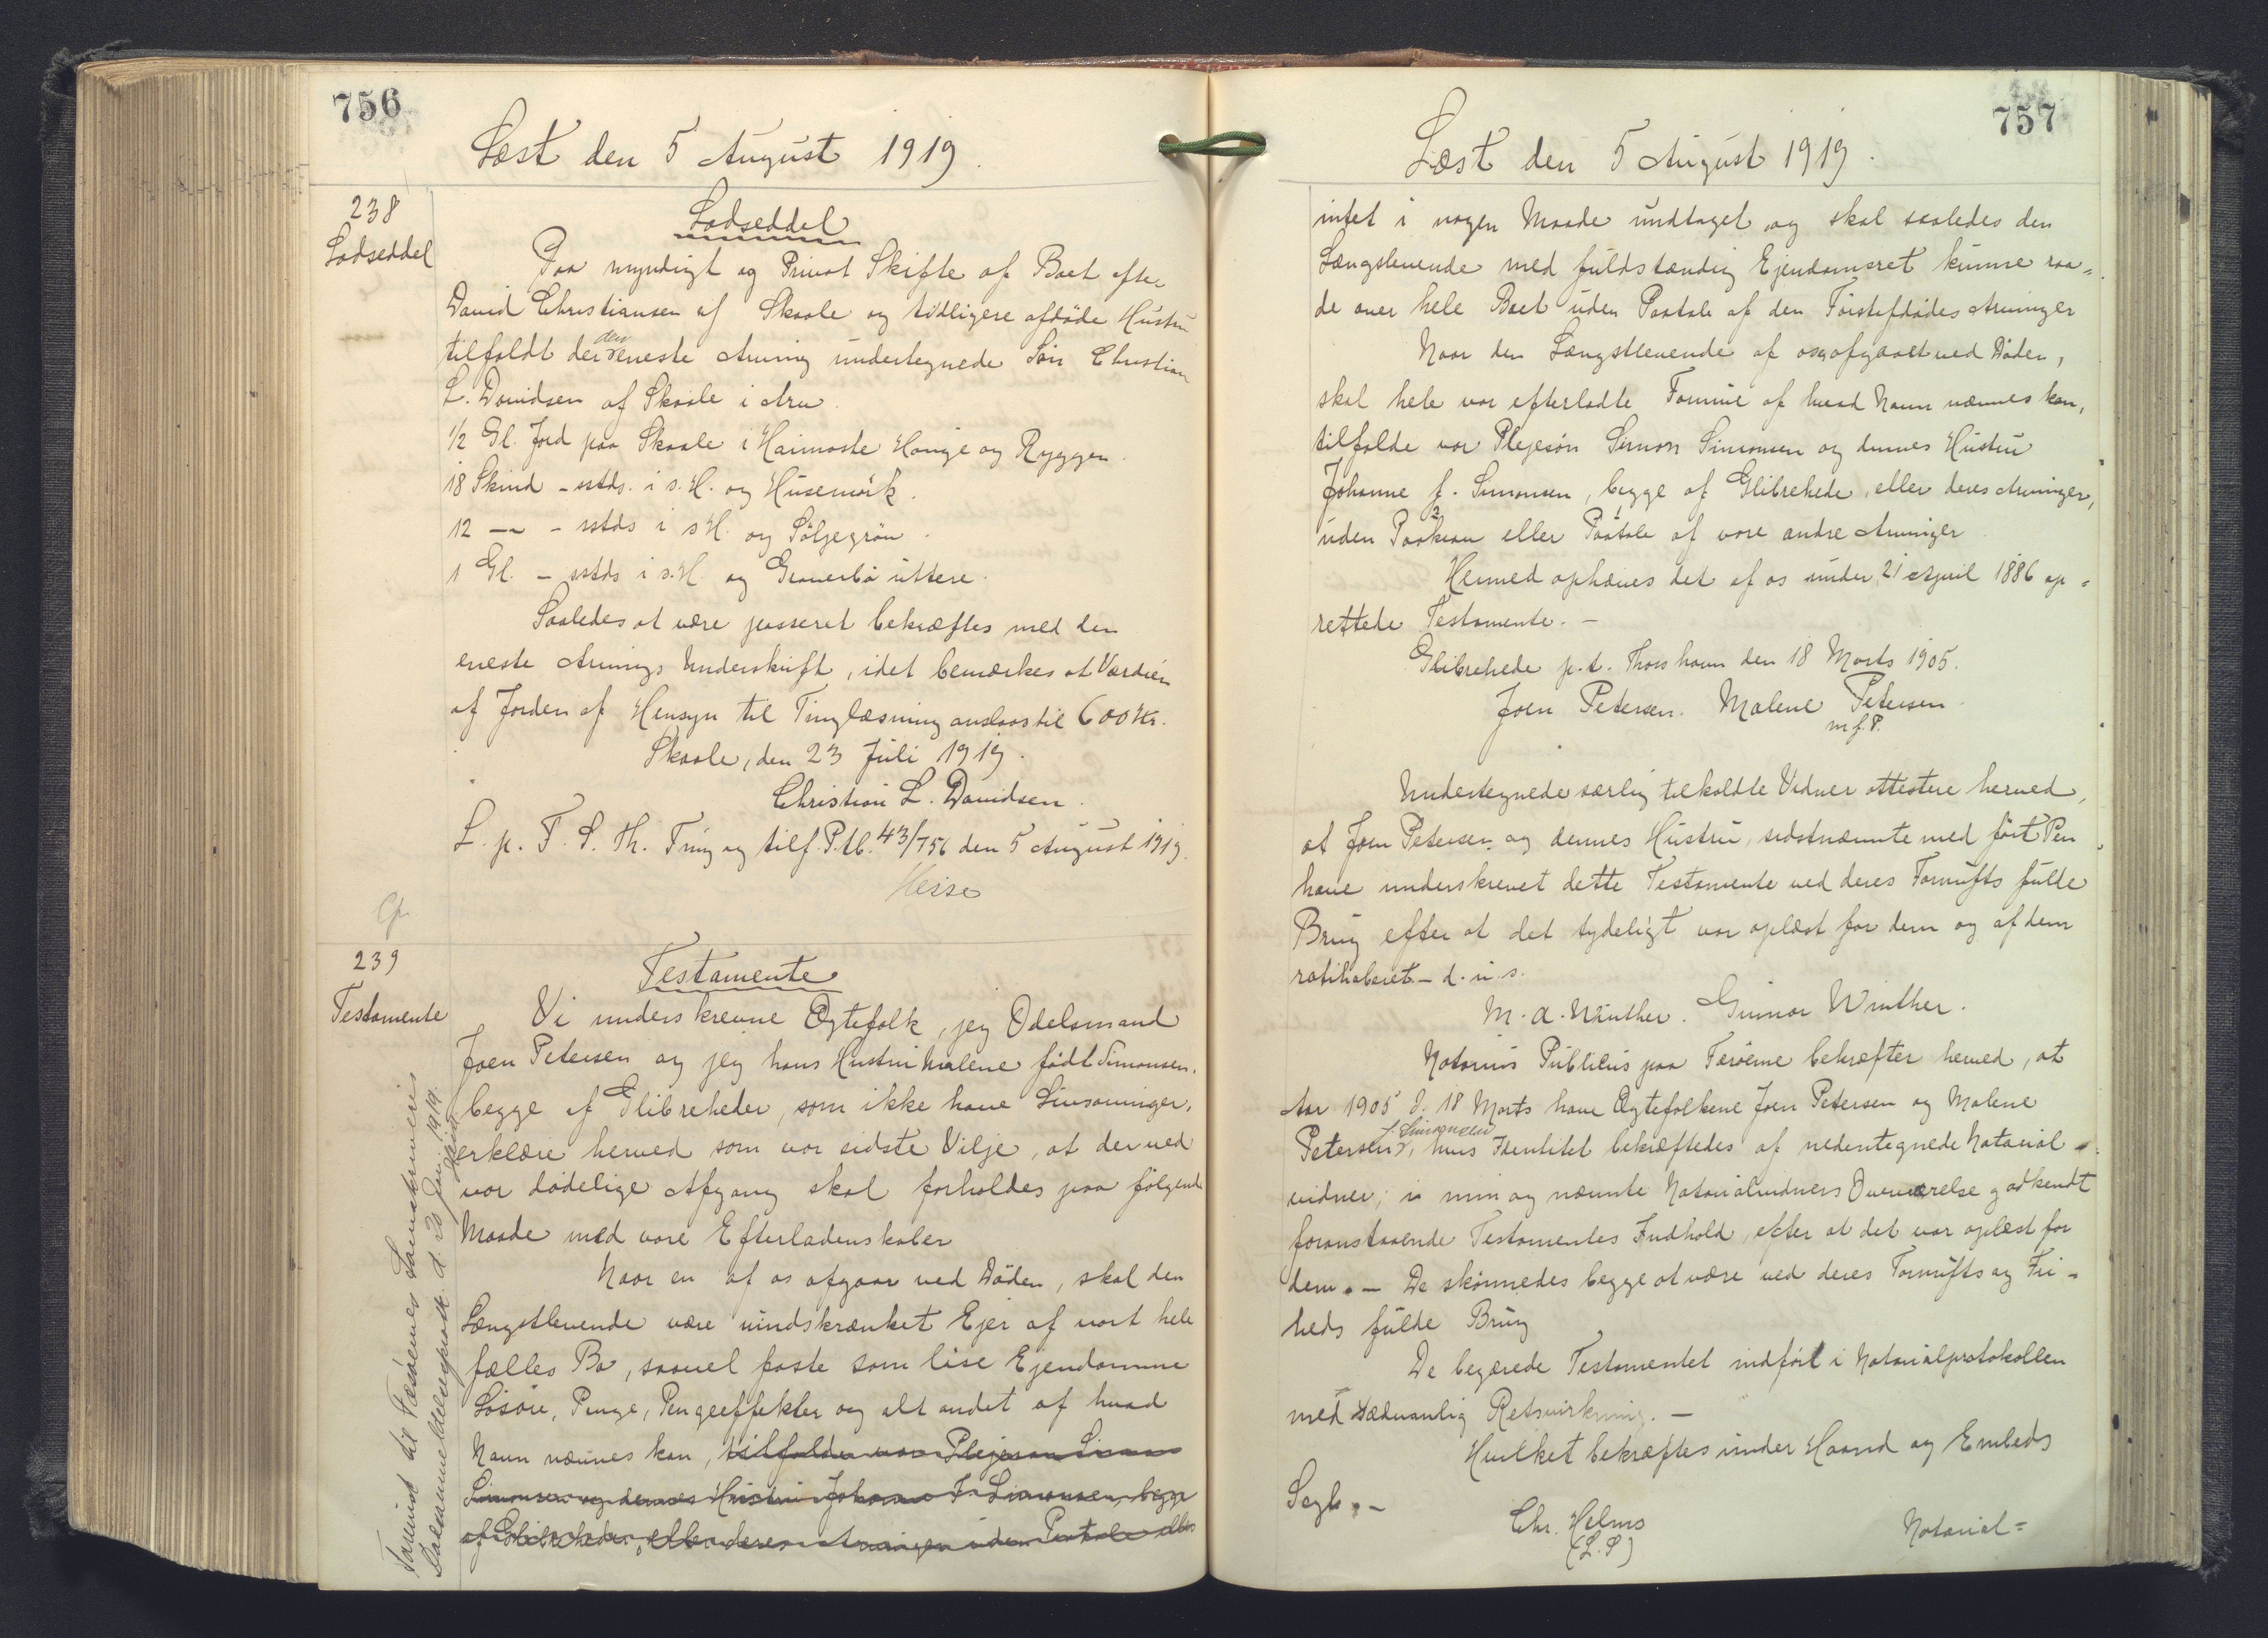 756
Læst den 5 August 1919.
238
Lodseddel
Lodseddel
Paa myndigt og Privat Skifte af Boet efter
David Christiansen af Skaale og tidligere afdøde Hustru
tilfaldt der den eneste Arving undertegnede Søn Christian
L. Davidsen af Skaale i Arv
1/2 Gl. Jord paa Skaale i Haimaste Hauge og Ryggen.
18 Skind - sstds. i s. H. og Husemørk.
12 — - sstds i s H. og Søljegrøn.
1 Gl. - sstds i s. H. og Graverbø uttere.
Saaledes at være passeret bekræftes med den
eneste Arvings Underskrift, idet bemærkes at Værdien
af Jorden af Hensyn til Tinglæsning anslaas til 600 Kr.
Skaale, den 23 Juli 1919.
Christian L. Davidsen.
L. p. F. S. Th. Ting og tilf. P.tl. 43/756 den 5 August 1919.
Heise
239
Testamente
Testamente
Vi underskrevne Ægtefolk, jeg Odelsmand
Joen Petersen og jeg hans Hustru Malene født Simonsen,
begge af Glibreheder, som ikke have Livsarvinger,
erklære herved som vor sidste Vilje, at der ved
vor dødelige Afgang skal forholdes paa følgende
Maade med vore Efterladenskaber
Naar en af os afgaar ved Døden, skal den
Længstlevende være uindskrænket Ejer af vort hele
fælles Bo, saavel faste som løse Ejendomme
Løsøre, Penge, Pengeeffekter og alt andet af hvad
Navn nævnes kan, tilfalder vor Plejesøn Simon
Simonsen og dennes Hustru Johanne F. Simonsen, begge
af Glibreheder, eller deres Arvinger uden Paatale eller
757
Læst den 5 August 1919.
intet i nogen Maade undtaget og skal saaledes den
Længslevende med fuldstændig Ejendomsret kunne raa=
de over hele Boet uden Paatale af den Førstafdødes Arvinger
Naar den Længstlevende af os er afgaaet ved Døden,
skal hele vor efterladte Formue af hvad Navn nævnes kan,
tilfalde vor Plejesøn Simon Simonsen og dennes Hustru
Johanne f. Simonsen, begge af Glibrehede, eller deres Arvinger,
uden Paakrav eller Paatale af vore andre Arvinger
Hermed ophæves det af os under 21 April 1886 op=
rettede Testamente. -
Glibrehede p.t. Thorshavn den 18 Marts 1905.
Joen Petersen. Malene Petersen.
m. f. P.
Undertegnede særlig tilkaldte Vidner attestere herved,
at Joen Petersen og dennes Hustru, sidstnævnte med ført Pen
have underskrevet dette Testamente ved deres Fornufts fulde
Brug efter at det tydeligt var oplæst for dem og af dem
ratihaberet. - d. u. s.
M. A. Winther. Gunnar Winther.
Notarius Publicus paa Færøerne bekræfter herved, at
Aar 1905 d. 18 Marts have Ægtefolkene Joen Petersen og Malene
Petersen f. Simonsen, hvis Identitet bekræftedes af nedentegnede Notarial=
vidner, i min og nævnte Notarialvidners Overværelse godkendt
foranstaaende Testamentes Indhold, efter at det var oplæst for
dem. - De skønnedes begge at være ved deres Fornufts og Fri=
heds fulde Brug
De begærede Testamentet indført i Notarialprotokollen
med sædvanlig Retsvirkning. -
Hvilket bekræftes under Haand og Embeds
Segl. -
Chr. Helms
(L. S)
Notarial=